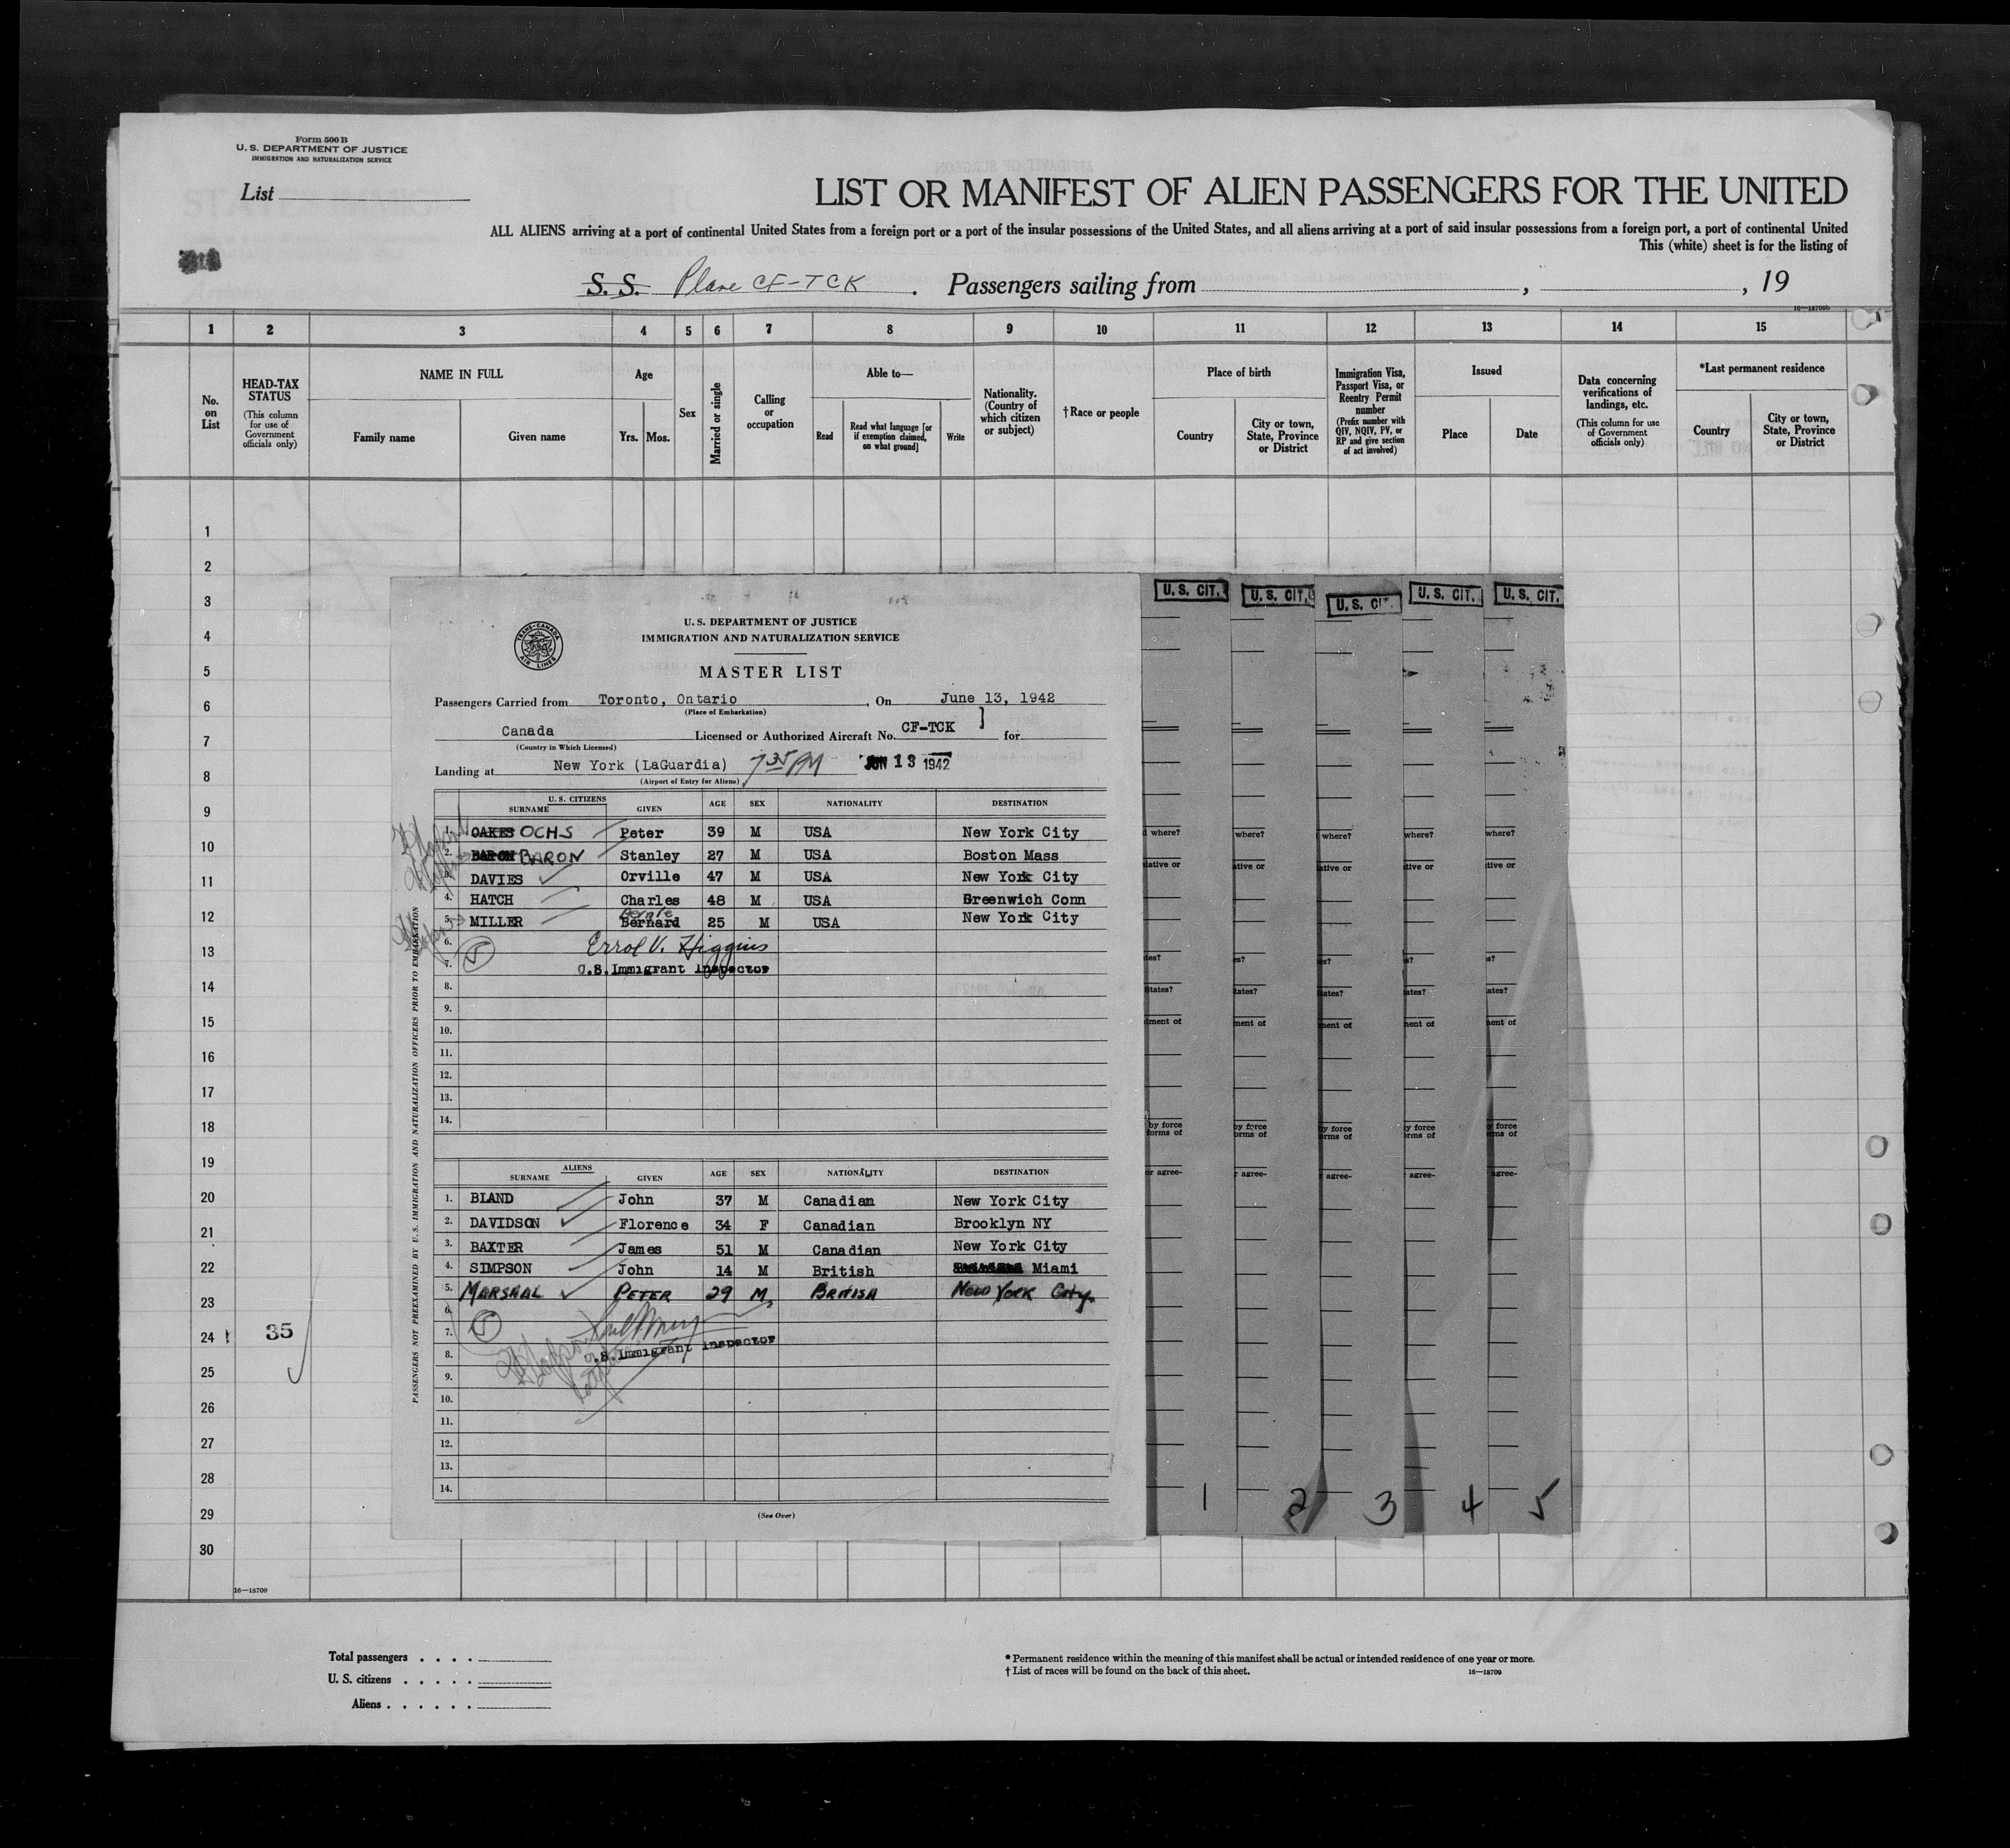 Form 500 B
U. S. DEPARTMENT OF JUSTICE
IMMIGRATION AND NATURALIZATION SERVICE
List
LIST OR MANIFEST OF ALIEN PASSENGERS FOR THE UNITED
ALL ALIENS arriving at a port of continental United States from a foreign port or a port of the insular possessions of the United States, and all aliens arriving at a port of said insular possessions from a foreign port, a port of continental United
This (white) sheet is for the listing of
S. S. Plane CF-TCK . Passengers sailing from , , 19
16—18709b
1 2 3 4 5 6 7 8 9 10 11 12 13 14 15
No. on List
HEAD-TAX STATUS
(This column for use of Government officials only)
NAME IN FULL
Family name
Given name
Age
Yrs. Mos.
Sex
Married or single
Calling or occupation
Able to—
Read
Read what language [or if exemption claimed, on what ground]
Write
Nationality. (Country of which citizen or subject)
†Race or people
Place of birth
Country
City or town, State, Province or District
Immigration Visa, Passport Visa, or Reentry Permit number
(Prefix number with QIV, NQIV, PV, or RP and give section of act involved)
Issued
Place
Date
Data concerning verifications of landings, etc.
(This column for use of Government officials only)
*Last permanent residence
Country
City or town, State, Province or District
1
2
3
4
5
6
7
8
9
10
11
12
13
14
15
16
17
18
19
20
21
22
23
24
35
25
26
27
28
29
30
16—18709
TRANS-CANADA AIR LINES
U. S. DEPARTMENT OF JUSTICE
IMMIGRATION AND NATURALIZATION SERVICE
MASTER LIST
Passengers Carried from Toronto, Ontario , On June 13, 1942
(Place of Embarkation)
Canada Licensed or Authorized Aircraft No. CF-TCK for
(Country in Which Licensed)
Landing at New York (LaGuardia) 7 35 PM JUN 13 1942
(Airport of Entry for Aliens)
U. S. CITIZENS
SURNAME GIVEN AGE SEX NATIONALITY DESTINATION
1. OAKES OCHS Peter 39 M USA New York City
2. BARON BARON Stanley 27 M USA Boston Mass
3. DAVIES Orville 47 M USA New York City
4. HATCH Charles 48 M USA Greenwich Conn
5. MILLER Bernard Bernie 25 M USA New York City
6. Errol V. Higgins
7. 5 U.S. Immigrant Inspector
8.
9.
10.
11.
12.
13.
14.
ALIENS
SURNAME GIVEN AGE SEX NATIONALITY DESTINATION
1. BLAND John 37 M Canadian New York City
2. DAVIDSON Florence 34 F Canadian Brooklyn NY
3. BAXTER James 51 M Canadian New York City
4. SIMPSON John 14 M British Miami
5. MARSHAL PETER 29 M BRITISH NEW YORK City
6.
7. 5
8. U.S. Immigrant Inspector
9.
10.
11.
12.
13.
14.
(See Over)
PASSENGERS NOT PREEXAMINED BY U. S. IMMIGRATION AND NATURALIZATION OFFICERS PRIOR TO EMBARKATION
U. S. CIT. U. S. CIT. U. S. CIT. U. S. CIT. U. S. CIT.
where? where? where? where? where?
lative or ative or ative or ative or tive or
des? es? es? s? s?
States? tates? tates? ates? ates?
tment of ment of ment of ment of ment of
by force by force y force y force y force
orms of orms of rms of rms of ms of
or agree- agree- agree- agree- agree-
1 2 3 4 5
Total passengers . . . .
U. S. citizens . . . . .
Aliens . . . . . .
* Permanent residence within the meaning of this manifest shall be actual or intended residence of one year or more.
† List of races will be found on the back of this sheet. 16—18709